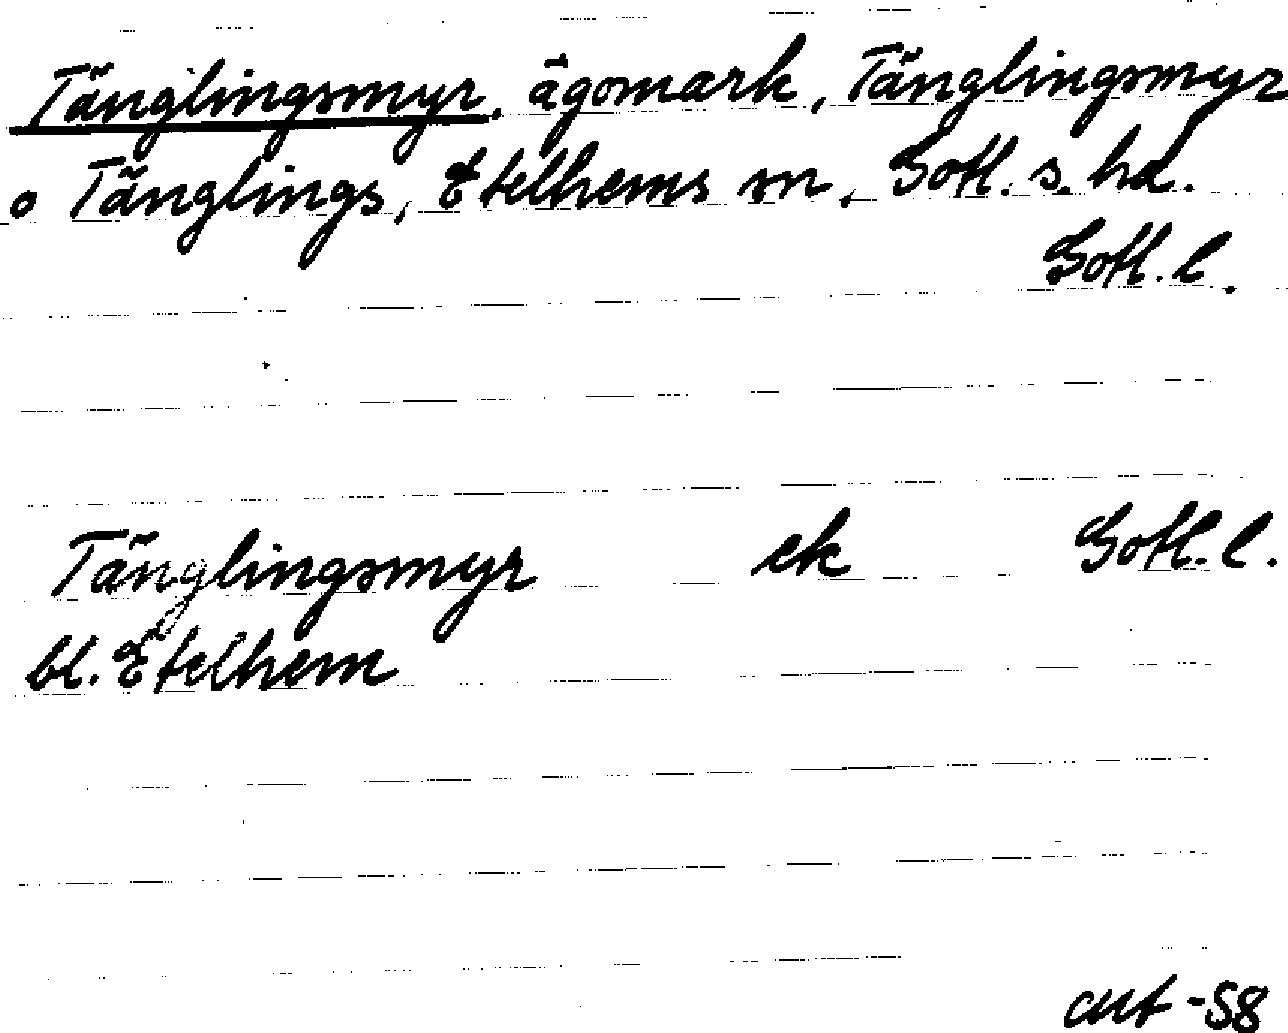 Tänglingsmyr, ägomark, Tänglingsmyr
o Tänglings, Etelhems sn, Gotl. s. hd.
Gotl. l.
Tänglingsmyr ek Gotl. l.
bl. Etelhem
aut -58